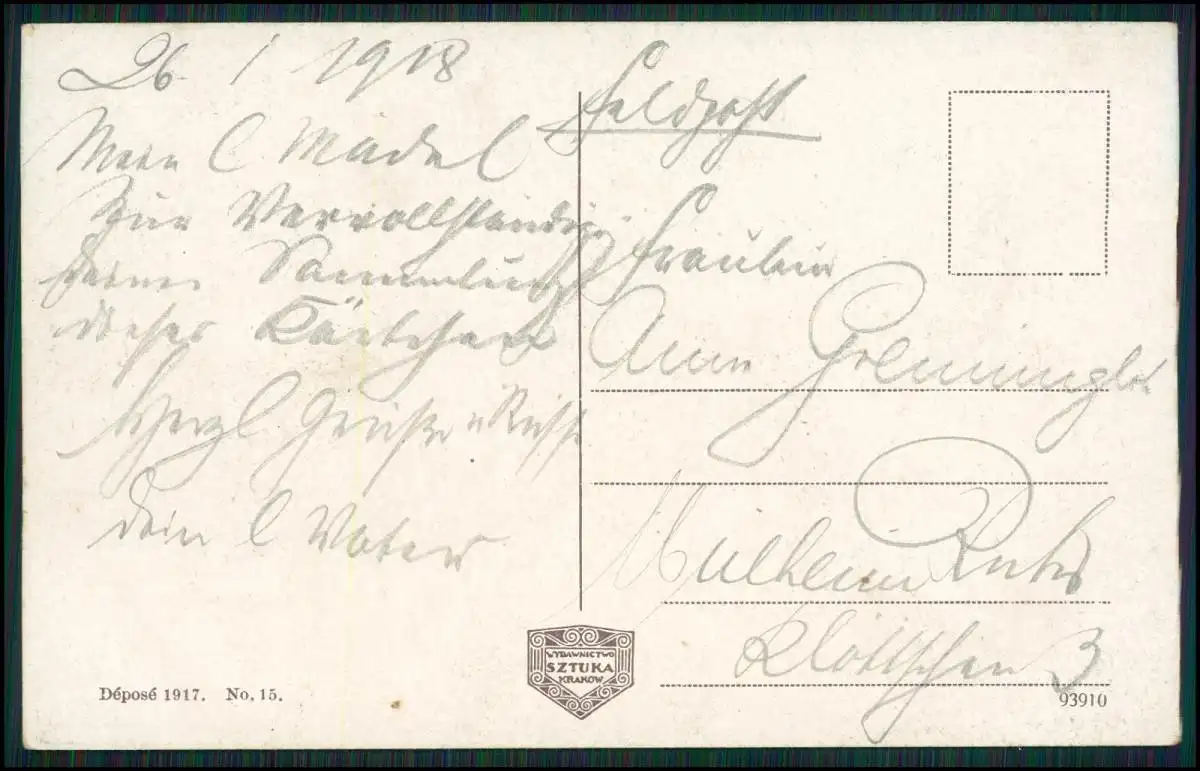 26. / 1 1918
Mein l Mädel
Zur Vervollständig.
Deiner Sammlung
dieser Kärtchen
Herzl Grüße u Küsse
Dein l Vater
Feldpost
Fräulein
Mülheim Ruhr
3
WYDAWNICTWO
SZTUKA
KRAKÓW
Déposé 1917. No. 15.
93910